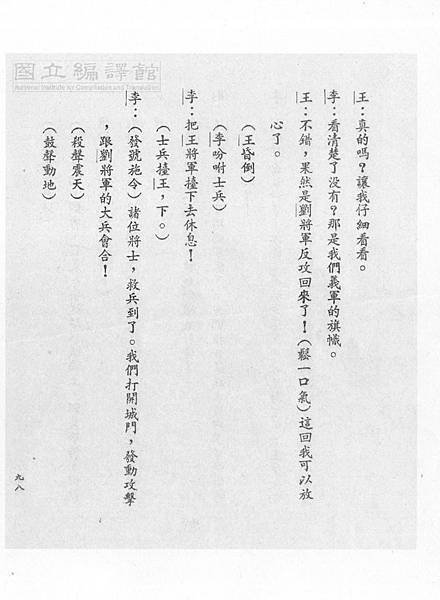 國立編譯館
National Institute for Compilation and Translation
王：真的嗎？讓我仔細看看。
李：看清楚了沒有？那是我們義軍的旗幟。
王：不錯，果然是劉將軍反攻回來了！（鬆一口氣）這回我可以放
心了。
（王昏倒）
（李吩咐士兵）
李：把王將軍擡下去休息！
（士兵擡王，下。）
李：（發號施令）諸位將士，救兵到了。我們打開城門，發動攻擊
，跟劉將軍的大兵會合！
（殺聲震天）
（鼓聲動地）
九八